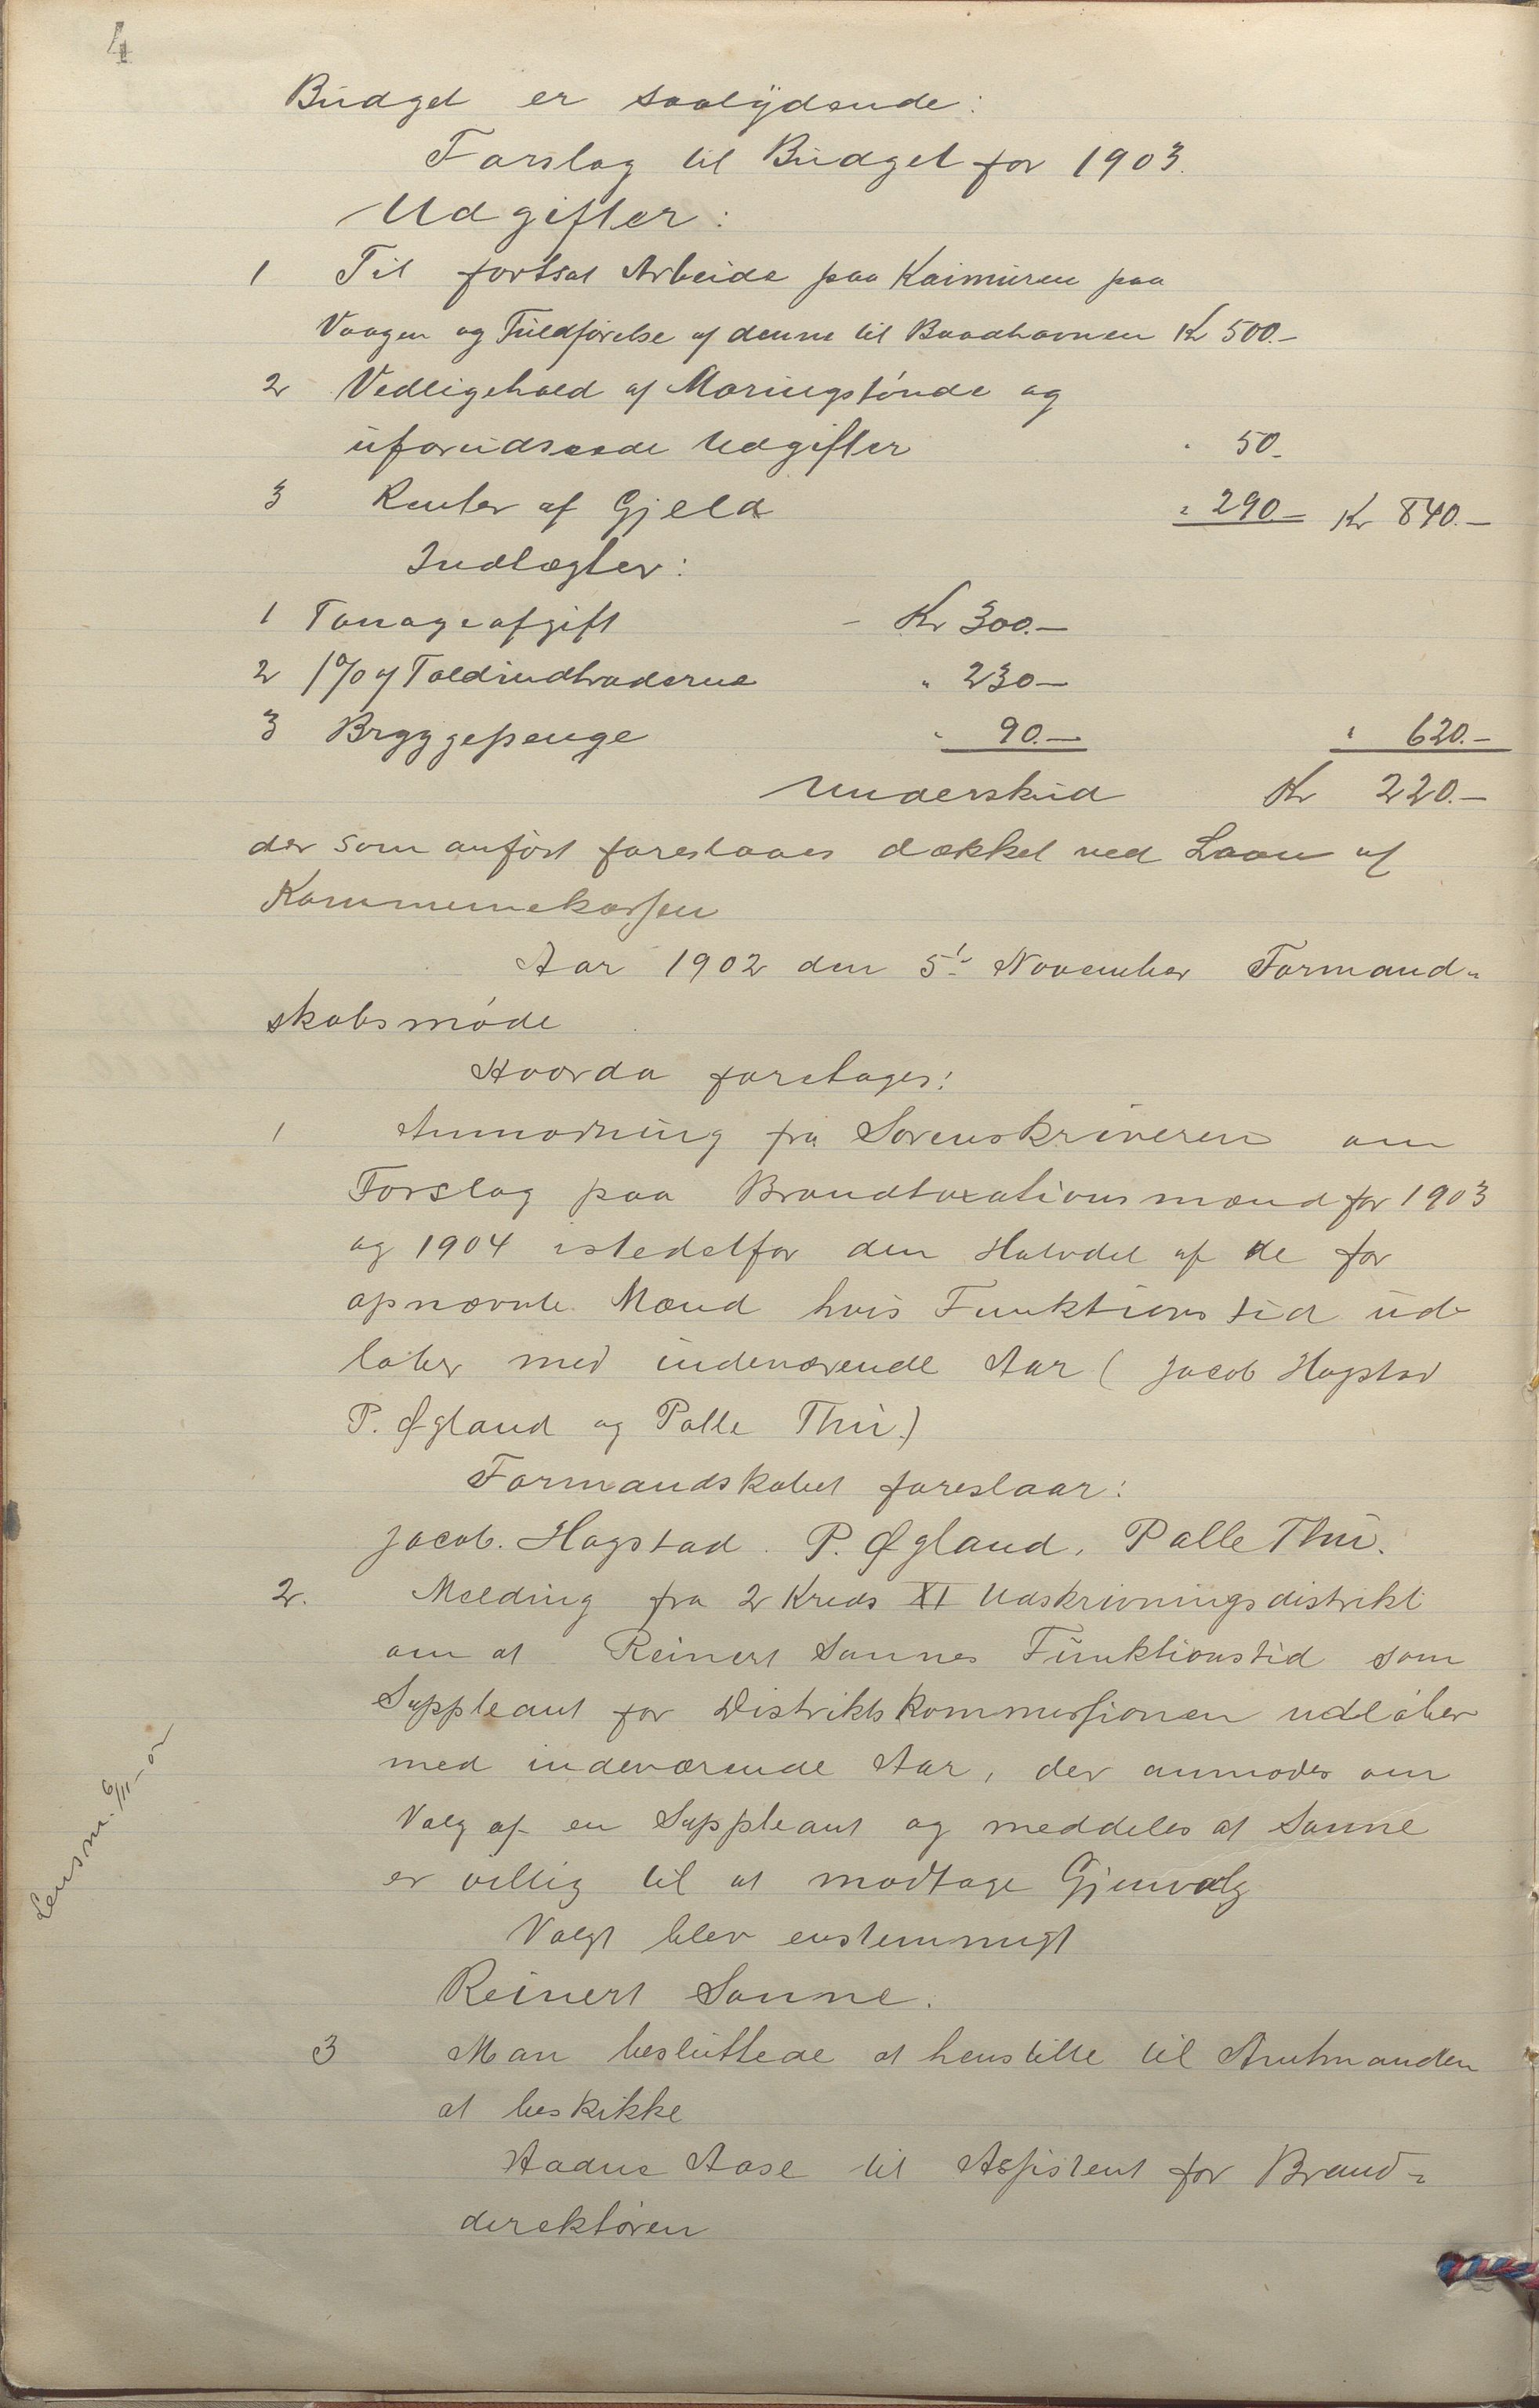 4
Budget er saalydende:
Forslag til Budget for 1903.
Udgifter:
1 Til fortsat Arbeide paa Kaimuren paa
Vaagen og Fuldførelse af denne til Baadhavnen Kr 500.–
2 Vedligehold af Moringstønde og
uforudseede Udgifter " 50.–
3 Renter af Gjeld " 290.– Kr 840.–
Indtægter:
1 Tonageafgift – Kr 300.–
2 1% af Toldindtræderne " 230.–
3 Bryggepenge " 90.– " 620.–
Underskud Kr 220.–
der som anført foreslaaes dækket ved Laan af
Kommunekassen
Aar 1902 den 5te November Formand-
skabsmøde
Hvorda foretages:
1 Anmodning fra Sorenskriveren om
Forslag paa Brandtaxationsmænd for 1903
og 1904 istedetfor den Halvdel af de før
opnævnte Mænd hvis Funktionstid ud-
løber med indeværende Aar (Jacob Hagstad
P. Øgland og Palle Thu.)
Formandskabet foreslaar:
Jacob. Hagstad. P. Øgland. Palle Thu.
2. Melding fra 2 Kreds XI Udskrivningsdistrikt
om at Reinert Sannes Funktionstid som
Suppleant for Distriktskommissionen udløber
med indeværende Aar, der anmodes om
Valg af en Suppleant og meddeles at Sanne
er villig til at modtage Gjenvalg
Valgt blev enstemmigt
Reinert Sanne.
Lensm. 6/11-02
3 Man besluttede at henstille til Amtmanden
at beskikke
Aadne Aase til Assistent for Brand-
direktøren